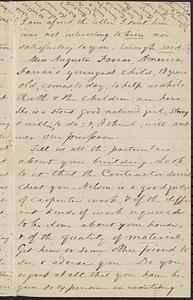 I am
was not interesting to him nor
satisfactory to you, enough said.
Miss Augusta Farrar America
Farrar's youngest child, 18 years
old, comes to day, to help us while
Ruth & the children are here
She is a stout good natured girl, strong
& I think will
our purpose
Tell us all the particulars
about your building. Look
to it that the Contractor doesn't
cheat you. Nelson is a good judge
of carpenters work, & of the diff
erent kinds of work required
to be done about your house,
& of the quality of material
Get him or some other friend to
see, & advise you. Do you
regret at all that you have be
gun so expensive an undertaking